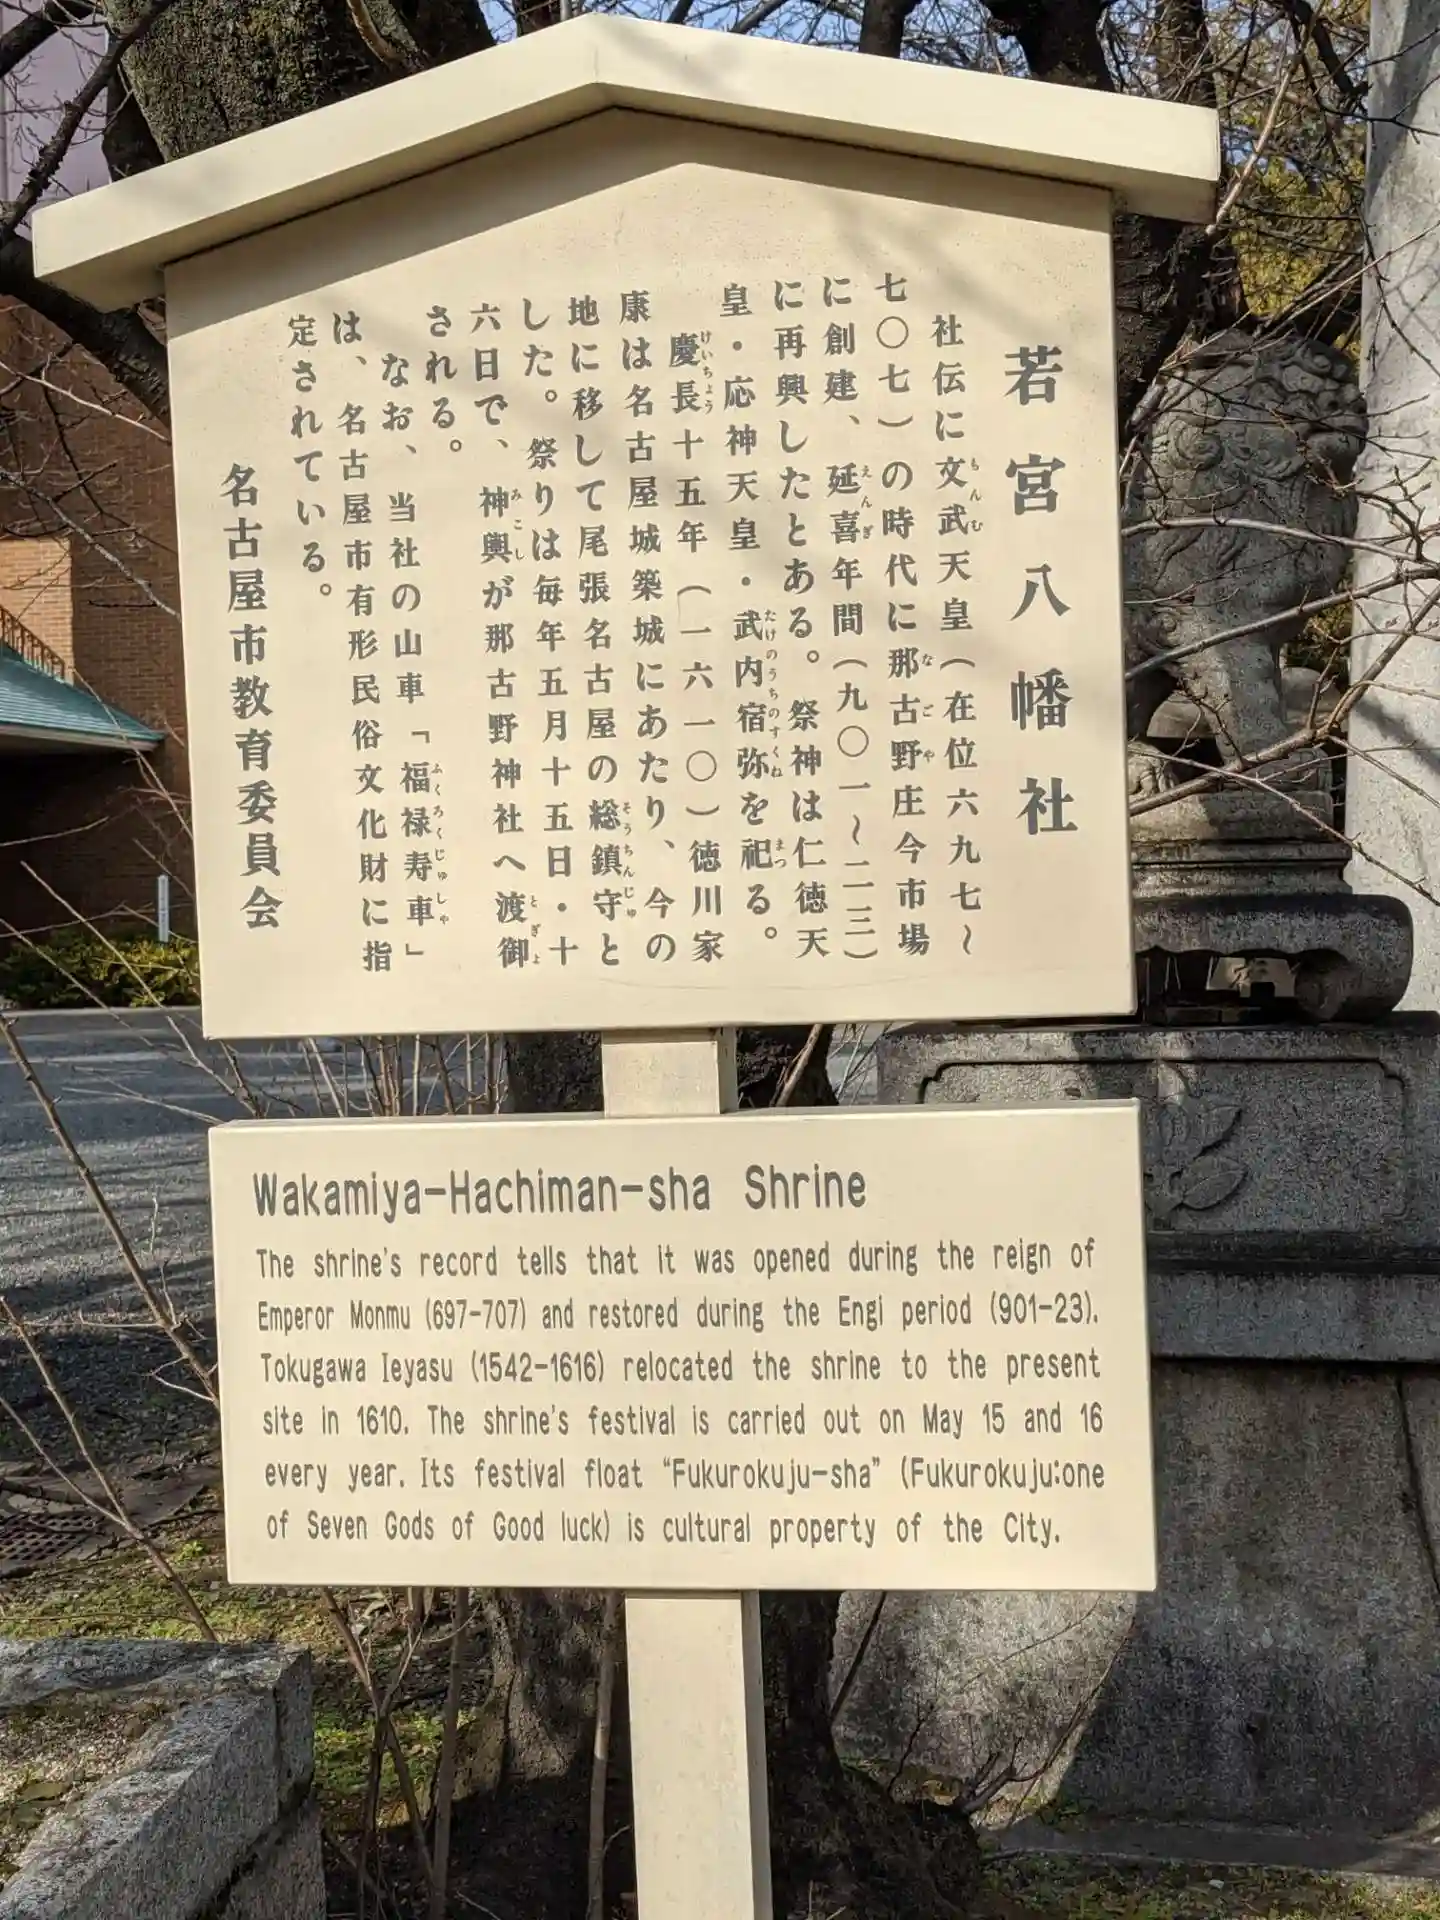 若宮八幡社
社伝に文武天皇（在位六九七～
七〇七）の時代に那古野庄今市場
に創建、延喜年間（九〇一～二三）
に再興したとある。祭神は仁徳天
皇・応神天皇・武内宿弥を祀る。
慶長十五年（一六一〇）徳川家
康は名古屋城築城にあたり、今の
地に移して尾張名古屋の総鎮守と
した。祭りは毎年五月十五日・十
六日で、神輿が那古野神社へ渡御
される。
なお、当社の山車「福禄寿車」
は、名古屋市有形民俗文化財に指
定されている。
名古屋市教育委員会
Wakamiya-Hachiman-sha Shrine
The shrine's record tells that it was opened during the reign of
Emperor Monmu (697-707) and restored during the Engi period (901-23).
Tokugawa Ieyasu (1542-1616) relocated the shrine to the present
site in 1610. The shrine's festival is carried out on May 15 and 16
every year. Its festival float “Fukurokuju-sha” (Fukurokuju:one
of Seven Gods of Good luck) is cultural property of the City.